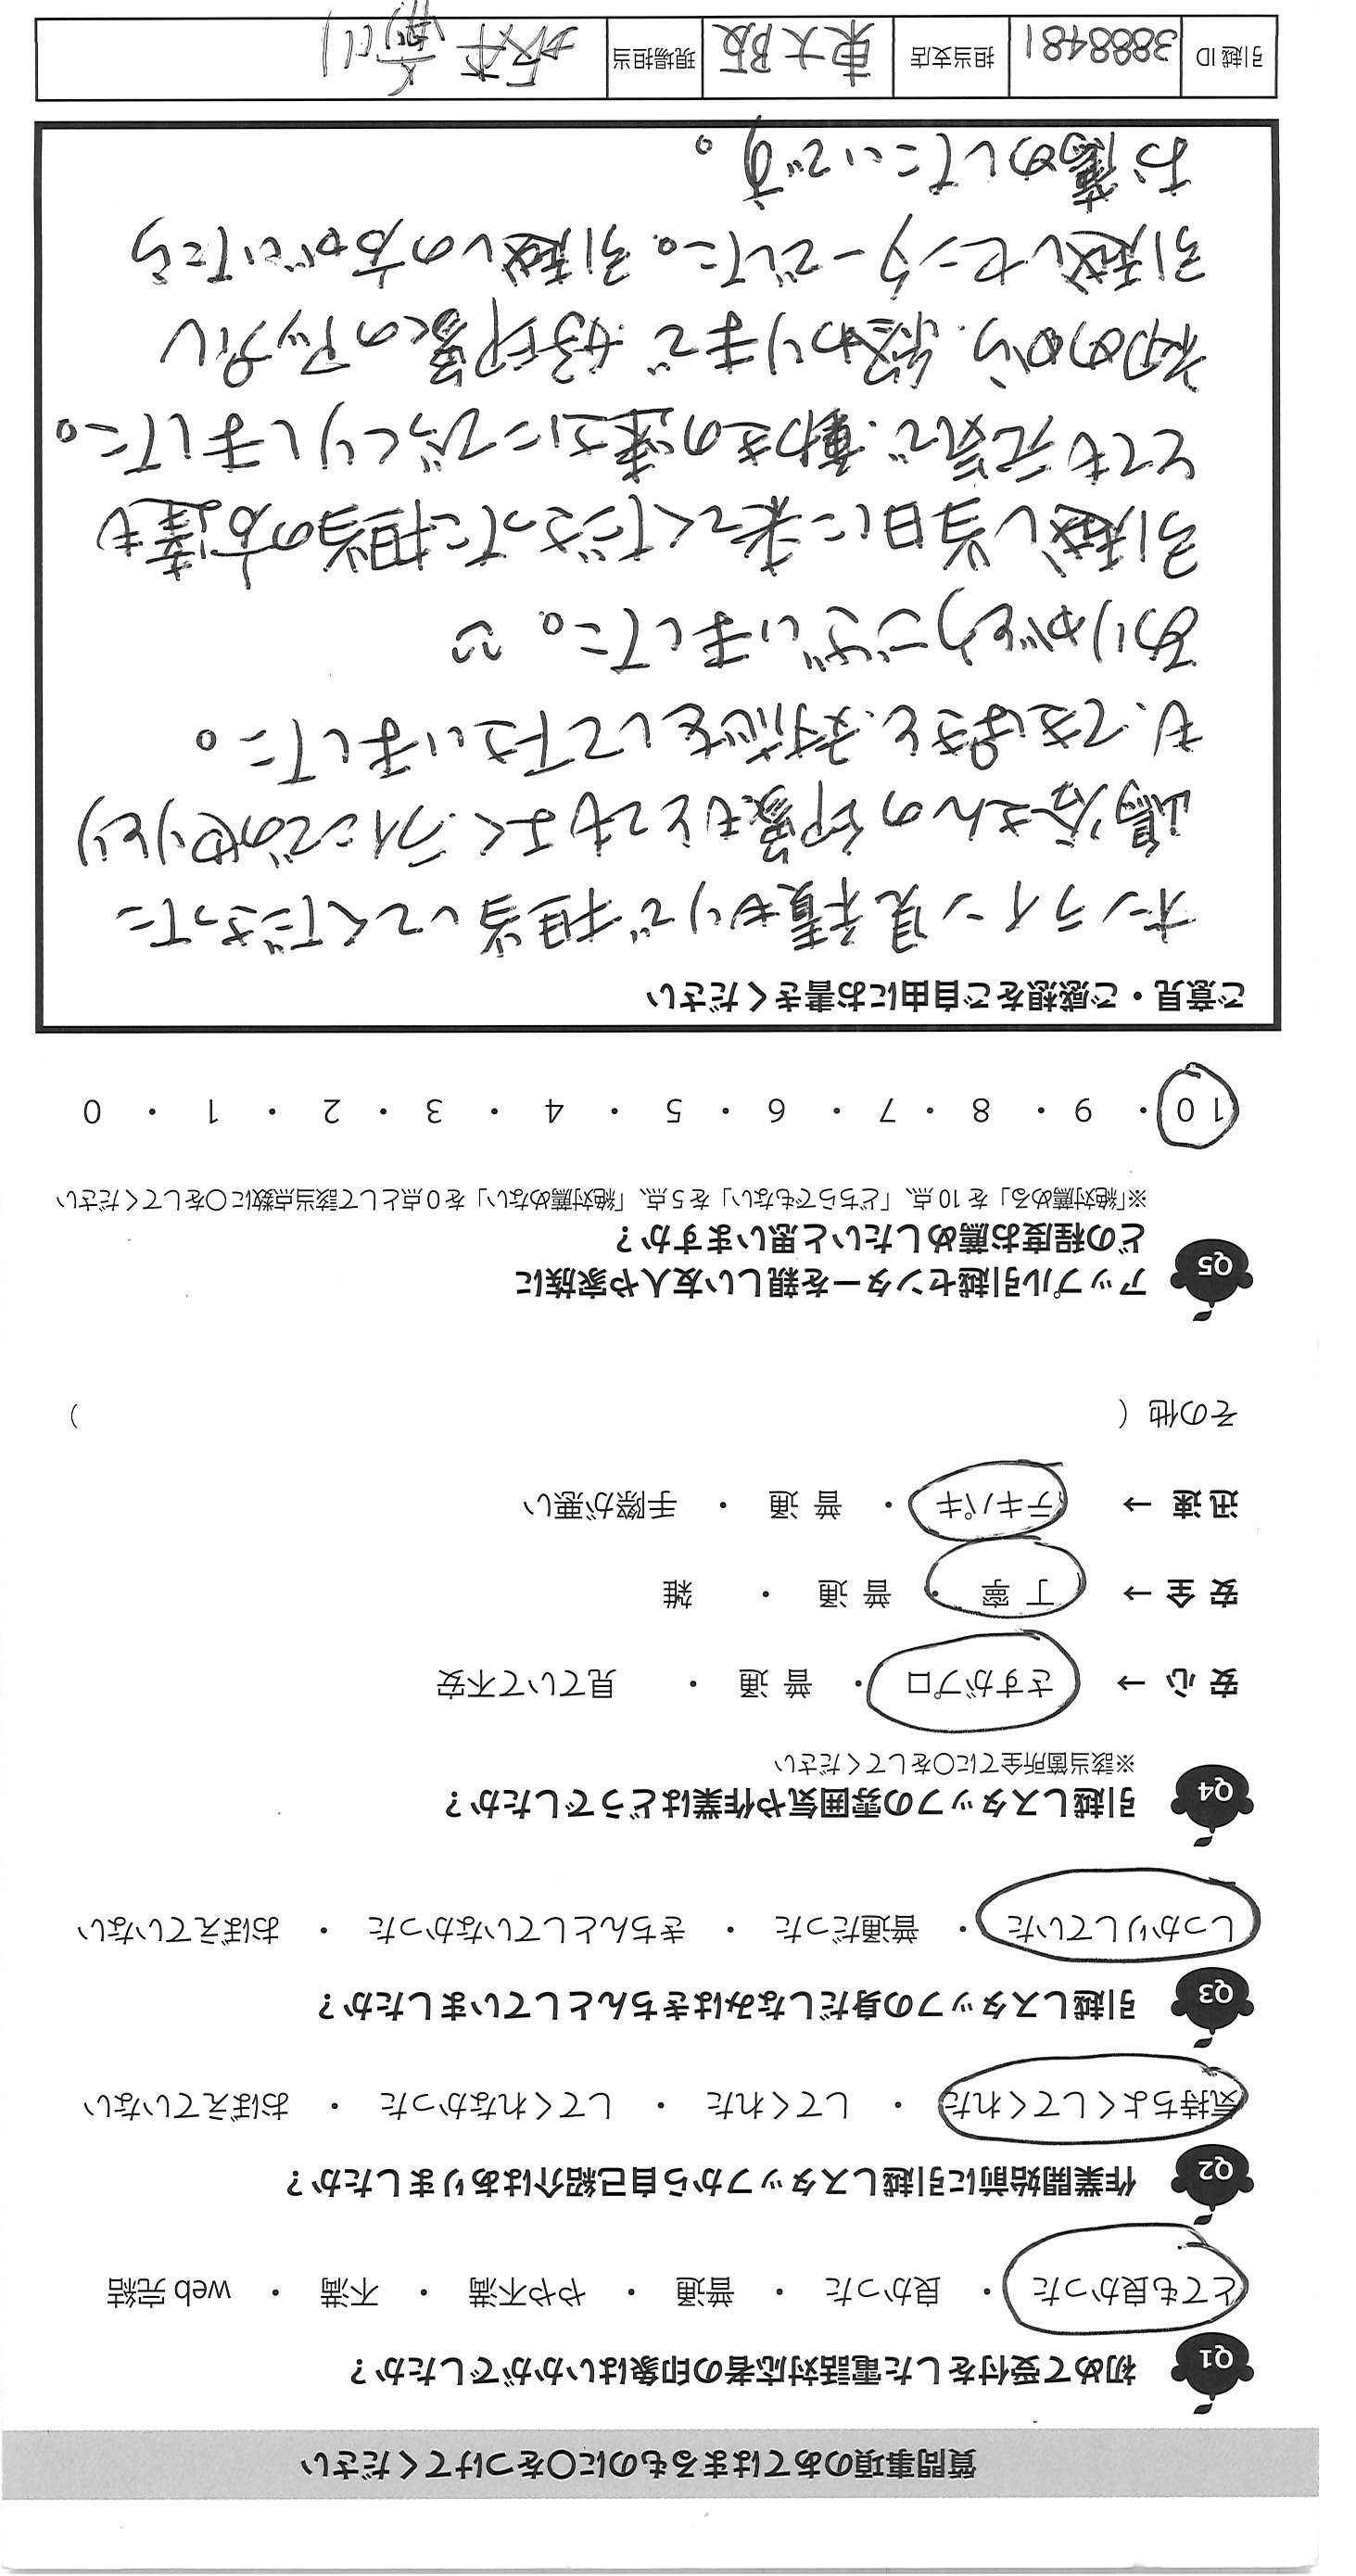 質問事項のあてはまるものに〇をつけてください
Q1 初めて受付をした電話対応者の印象はいかがでしたか？
とても良かった ・ 良かった ・ 普通 ・ やや不満 ・ 不満 ・ web 完結
Q2 作業開始前に引越しスタッフから自己紹介はありましたか？
気持ちよくしてくれた ・ してくれた ・ してくれなかった ・ おぼえていない
Q3 引越しスタッフの身だしなみはきちんとしていましたか？
しっかりしていた ・ 普通だった ・ きちんとしていなかった ・ おぼえていない
Q4 引越しスタッフの雰囲気や作業はどうでしたか？
※該当箇所全てに〇をしてください
安 心 → さすがプロ ・ 普 通 ・ 見ていて不安
安 全 → 丁 寧 ・ 普 通 ・ 雑
迅 速 → テキパキ ・ 普 通 ・ 手際が悪い
その他（ ）
Q5 アップル引越センターを親しい友人や家族に
どの程度お薦めしたいと思いますか？
※「絶対薦める」を 10 点、「どちらでもない」を 5 点、「絶対薦めない」を 0 点として該当点数に〇をしてください
10 ・ 9 ・ 8 ・ 7 ・ 6 ・ 5 ・ 4 ・ 3 ・ 2 ・ 1 ・ 0
ご意見・ご感想をご自由にお書きください
オンライン見積もりで担当してくださった
嶋谷さんの印象もとてもよく、ラインでのやりとり
も、てきぱきと対応をして下さいました。
ありがとうございました。
引越し当日に来てくださった担当の方達も
とても元気で、動きの速さにびっくりしました。
初めから、終わりまで 好印象のアップル
引越しセンターでした。引越しの方がいたら
お薦めしたいです。
引越 ID 3888481 担当支店 東大阪 現場担当 坂本